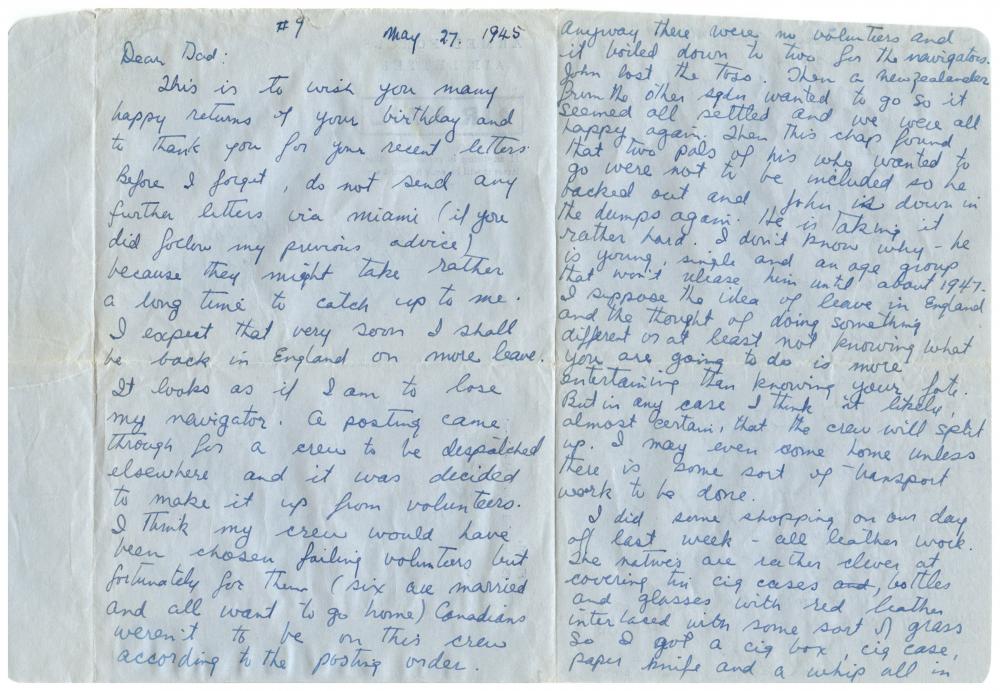 #9 May 27. 1945
Dear Dad:
This is to wish you many
happy returns of your birthday and
to thank you for your recent letters.
Before I forget, do not send any
further letters via Miami (if you
did follow my previous advice)
because they might take rather
a long time to catch up to me.
I expect that very soon I shall
be back in England on more leave.
It looks as if I am to lose
my navigator. A posting came
through for a crew to be despatched
elsewhere and it was decided
to make it up from volunteers.
I think my crew would have
been chosen failing volunteers but
fortunately for them (six are married
and all want to go home) Canadians
weren't to be on this crew
according to the posting order.
Anyway there were no volunteers and
it boiled down to two for the navigators.
John lost the toss. Then a newzealander
from the other sqdn wanted to go so it
seemed all settled and we were all
happy again. Then this chap found
that two pals of his who wanted to
go were not to be included so he
backed out and John is down in
the dumps again. He is taking it
rather hard. I don't know why - he
is young, single and an age group
that won't release him until about 1947.
I suppose the idea of leave in England
and the thought of doing something
different or at least not knowing what
you are going to do is more
entertaining than knowing your fate.
But in any case I think it likely,
almost certain, that the crew will split
up. I may even come home unless
there is some sort of transport
work to be done.
I did some shopping on our day
off last week - all leather work.
The natives are rather clever at
covering tin cig cases and, bottles
and glasses with red leather
interlaced with some sort of grass
so I got a cig box, cig case,
paper knife and a whip all in